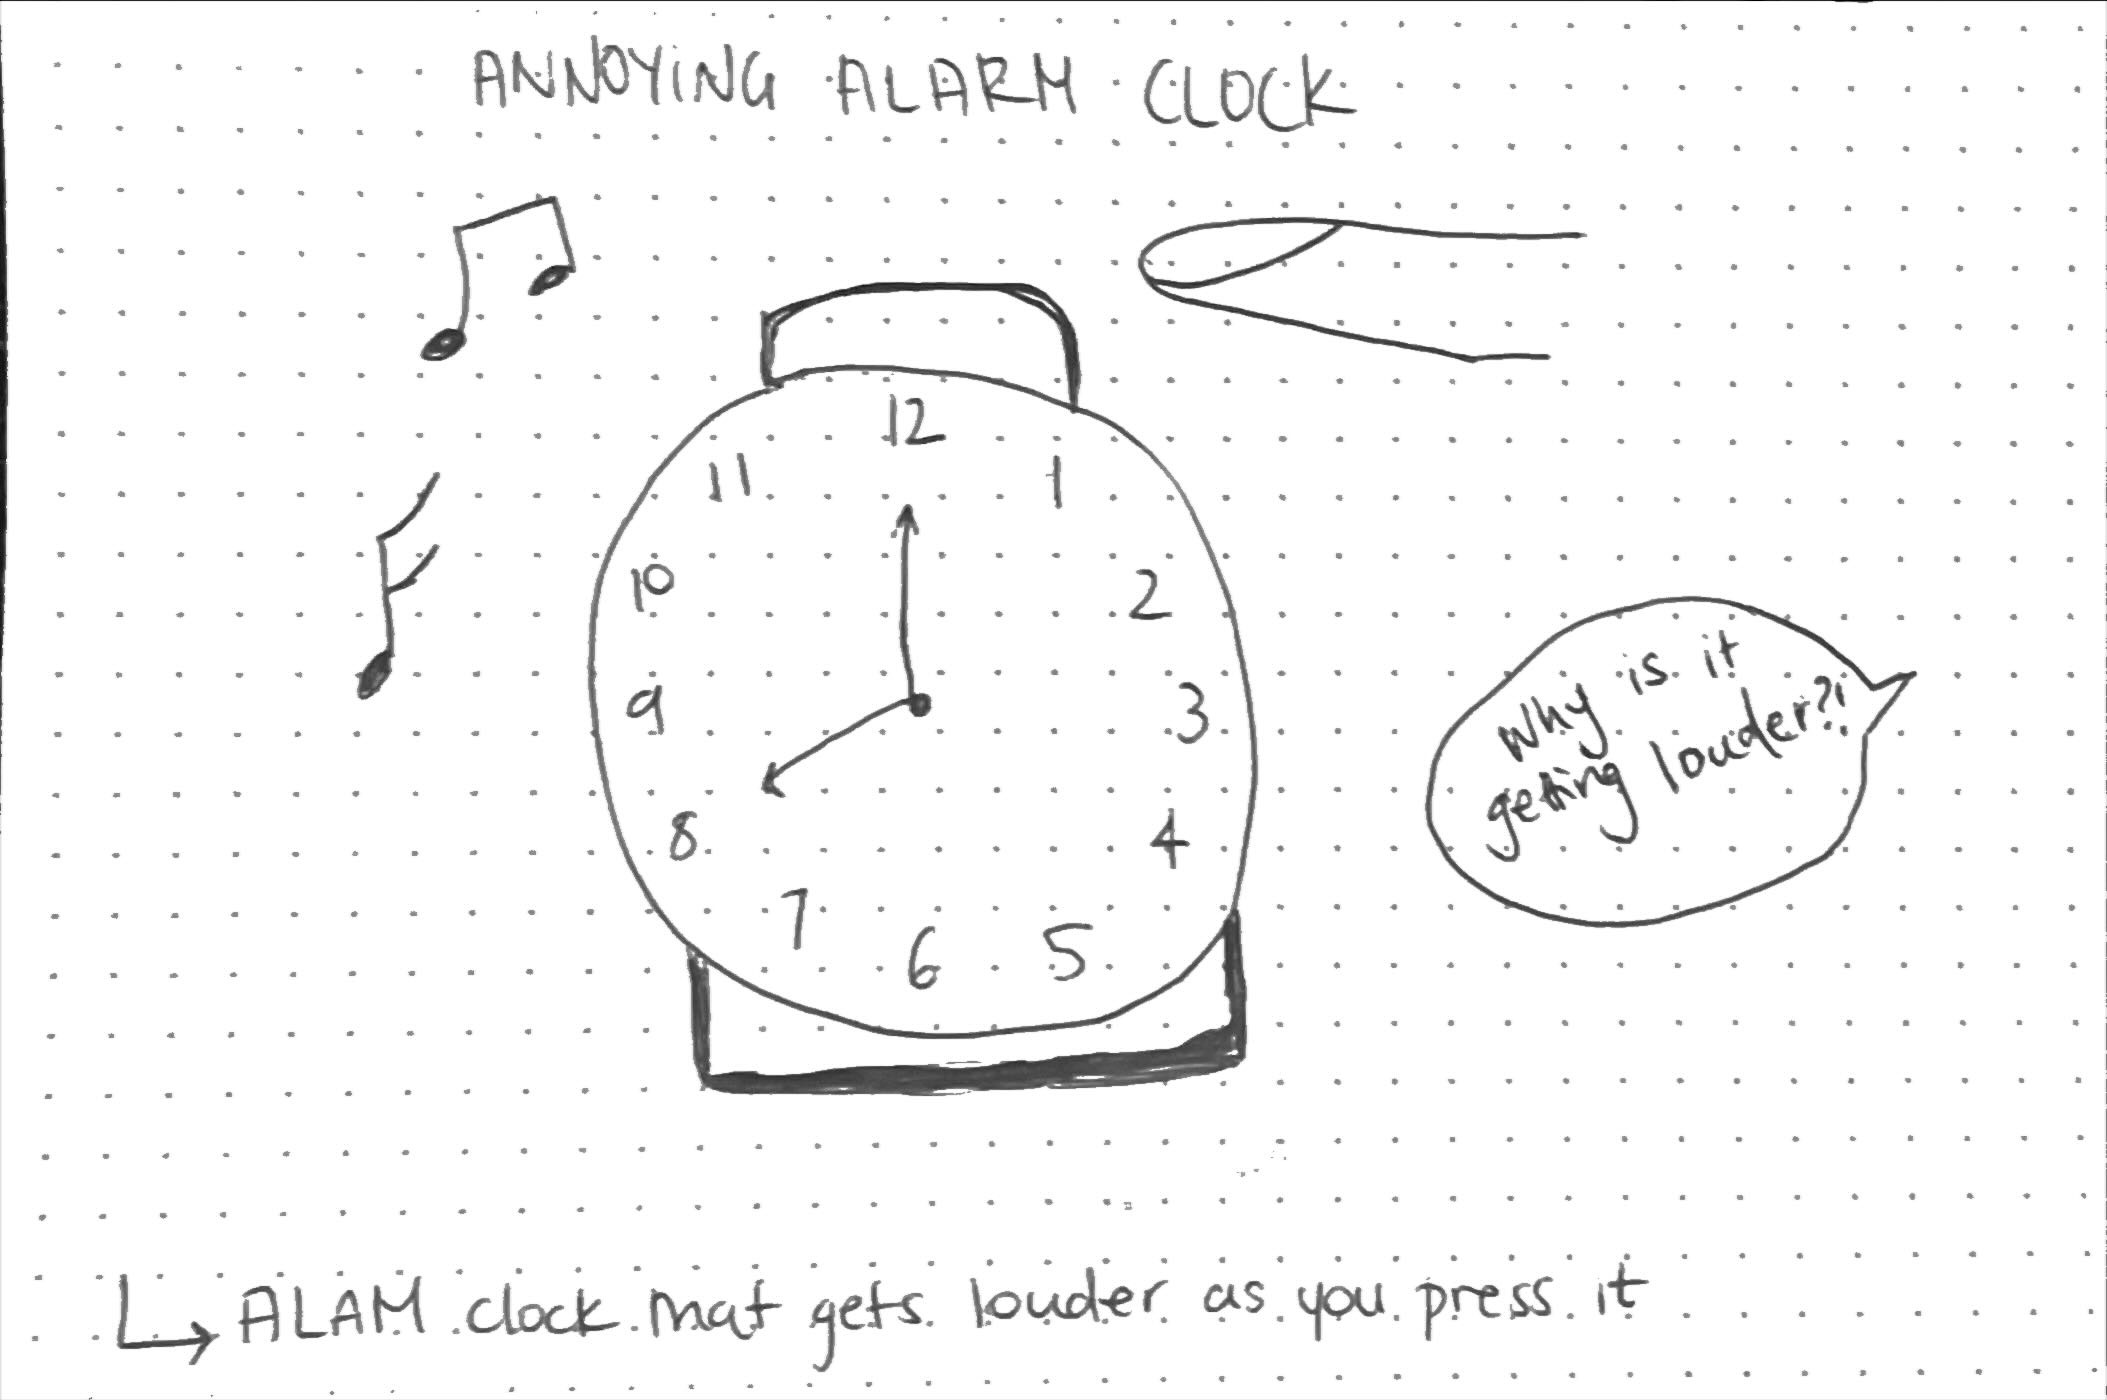 ANNOYING ALARM CLOCK
12
11
1
10
2
9
3
8
4
7
6
5
Why is it
getting louder?!
ALAM clock mat gets louder as you press it